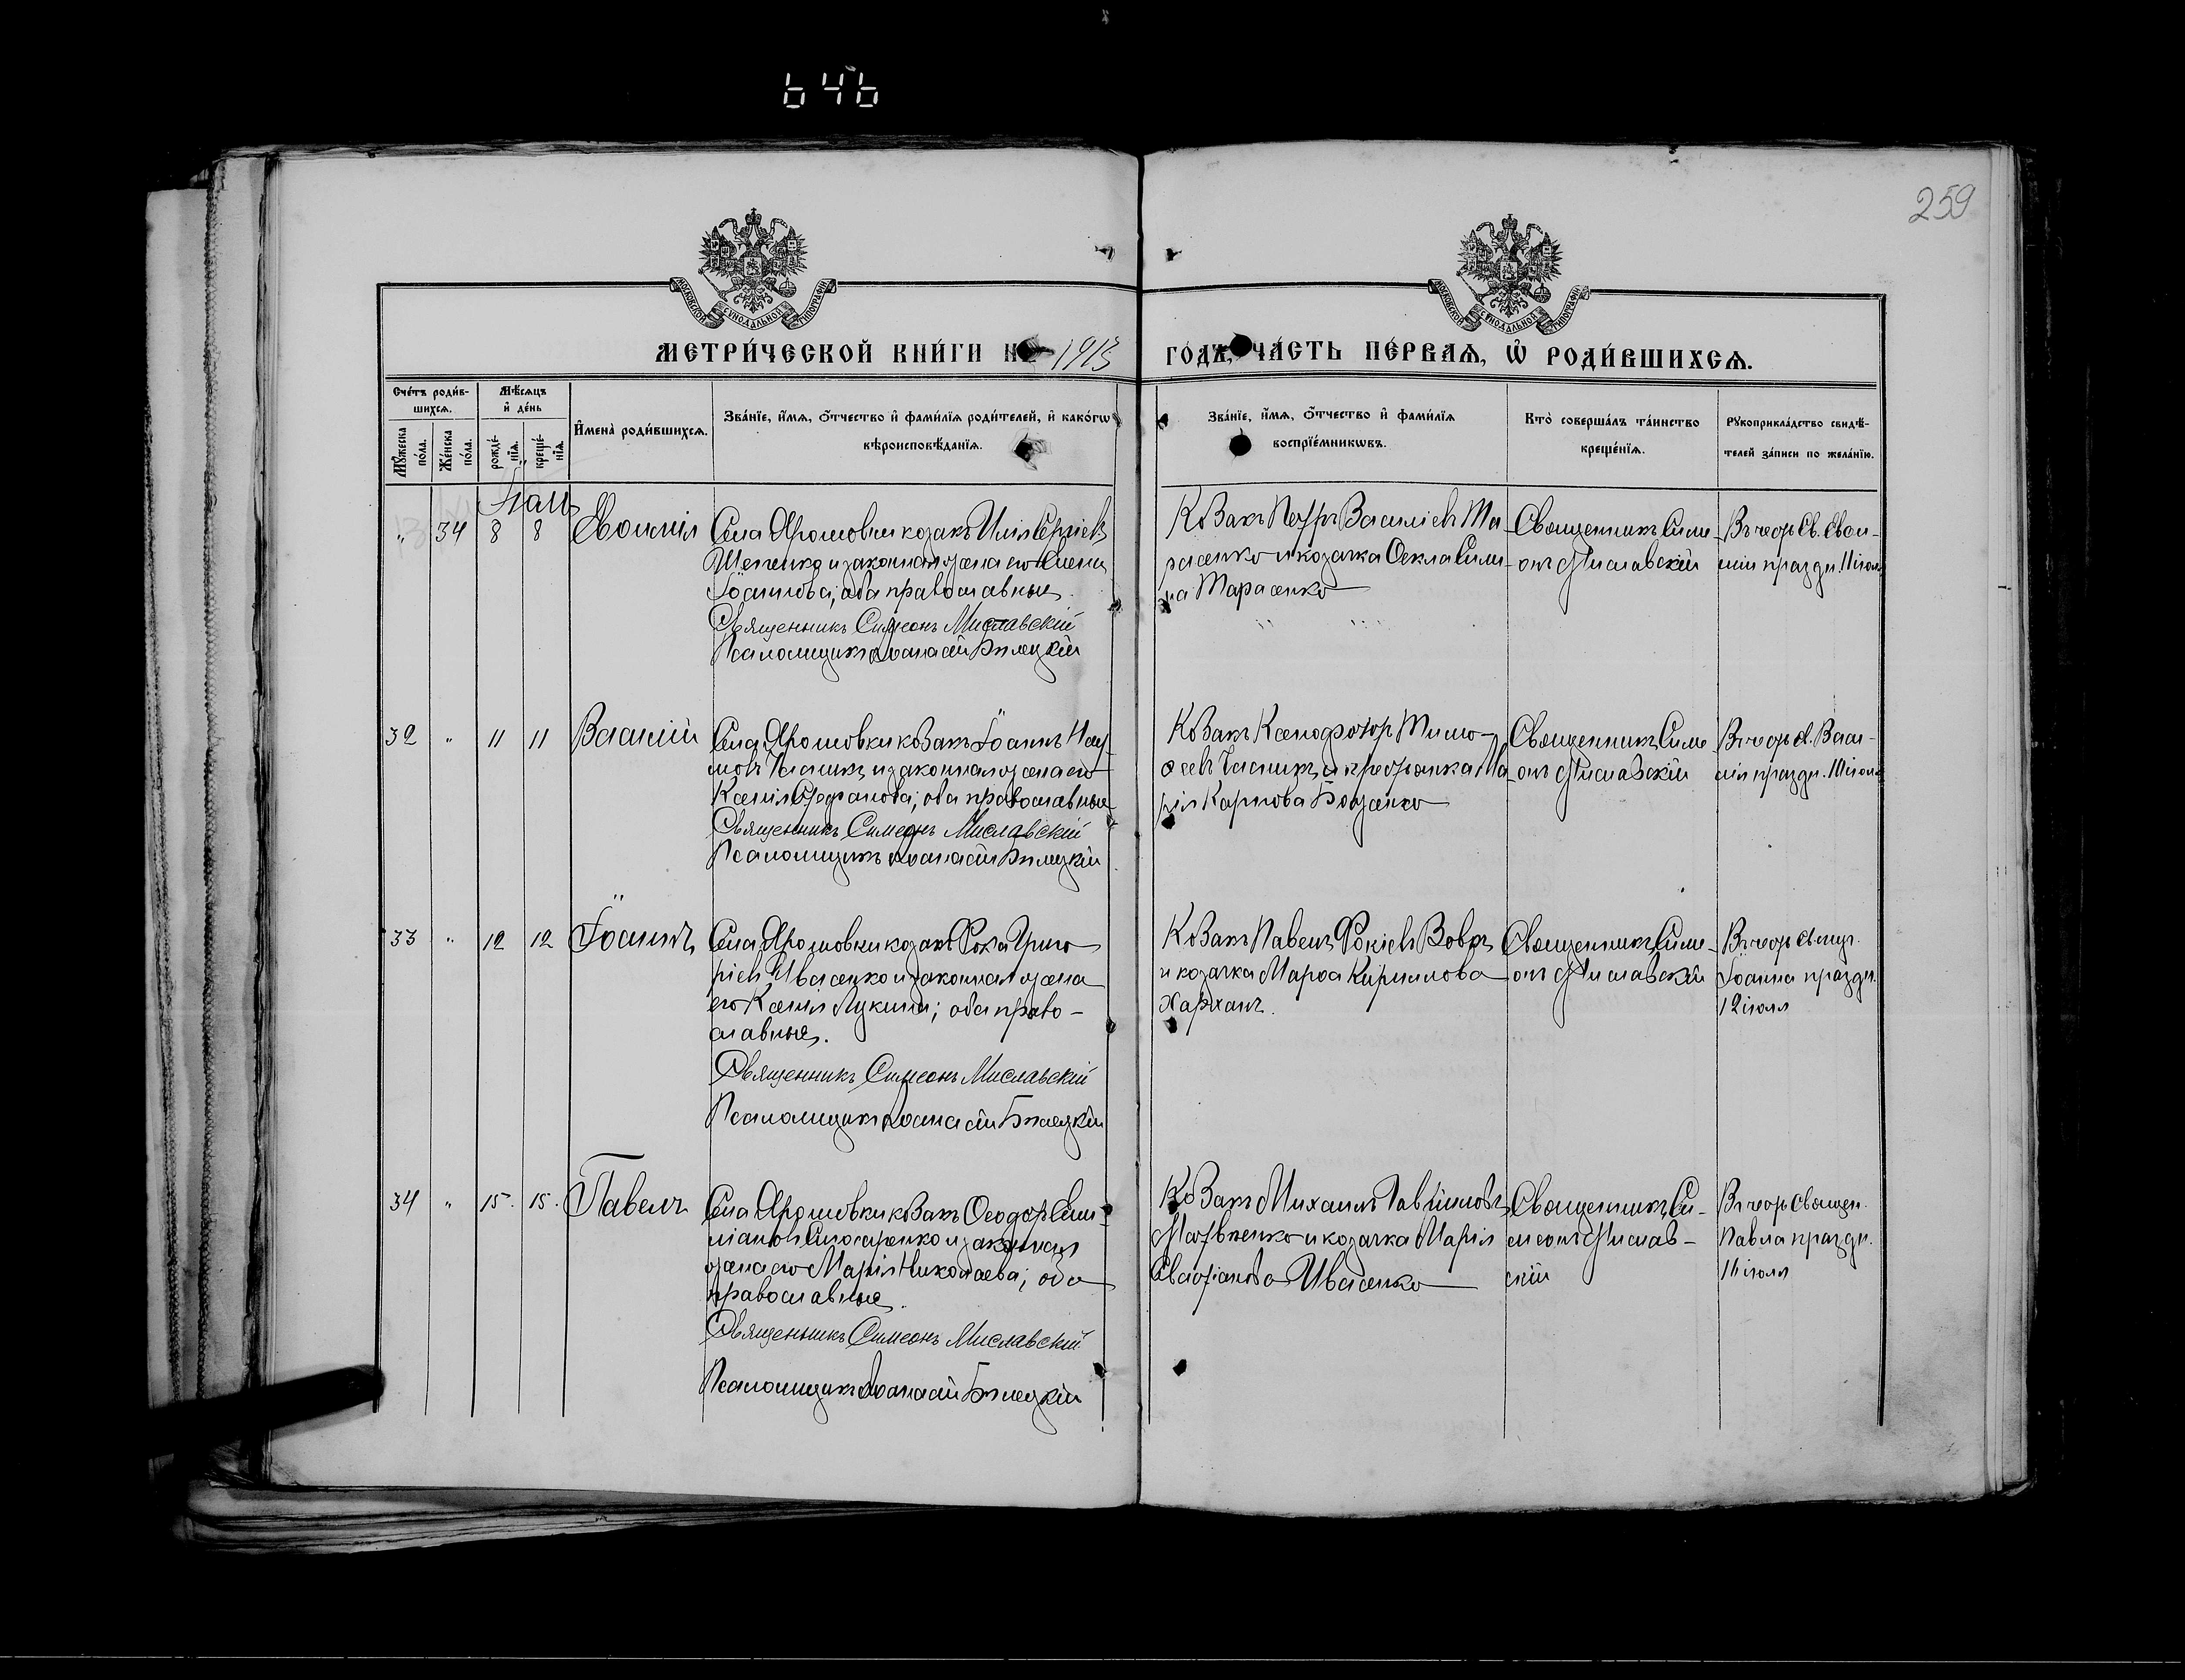 646
259
МОСКОВСКОЙ СѴНОДАЛЬНОЙ ТИПОГРАФІИ
МОСКОВСКОЙ СѴНОДАЛЬНОЙ ТИПОГРАФІИ
МЕТРИ́ЧЕСКОЙ КНИ́ГИ 1913 ГО́ДЪ, ЧА́СТЬ ПЕ́РВАѦ, Ѽ РОДИ́ВШИХСѦ.
Сче́тъ роди́в-
шихсѧ.
Мꙋ́жеска по́ла.
Же́нска по́ла.
Мѣ́сѧцъ
и҆ де́нь
рожде́-
нїѧ.
креще́-
нїѧ.
И҆мена̀ роди́вшихсѧ.
Зва́нїе, и҆́мѧ, ѻ҆́тчество и҆ фами́лїѧ роди́телей, и҆ како́гѡ
вѣроисповѣ́данїѧ.
Зва́нїе, и҆́мѧ, ѻ҆́тчество и҆ фами́лїѧ
воспрїе́мникѡвъ.
Кто̀ соверша́лъ та́инство
креще́нїѧ.
Рꙋкоприкла́дство свидѣ́-
телей за́писи по жела́нїю.
Май
" 34 8 8 Евѳимія
Села Ярошовки козакъ Илія Сергіевъ
и законная жена его
Іоаннова; оба православные.
Священникъ Симеонъ Миславскій
Псаломщикъ Аѳанасій Билецкій
Козакъ Петръ Василіевъ Та-
расенко и козачка Ѳекла
Тарасенко
Священникъ Симе-
онъ Миславскій
Въ честь Св. Евѳи-
міи праздн. 11 іюля
32 " 11 11 Василій
Села Ярошовки козакъ Іоаннъ Нау-
мовъ и законная жена его
Ксенія Стефанова; оба православные
Священникъ Симеонъ Миславскій
Псаломщикъ Аѳанасій Билецкій
Козакъ Ксенофонтъ Тимо-
ѳеевъ и крестьянка Ма-
рія Карпова Боженко
Священникъ Симе-
онъ Миславскій
Въ честь Васи-
лія праздн.
33 " 12 12 Іоаннъ
Села Ярошовки козакъ Фока Григо-
ріевъ Ивасенко и законная жена
его Ксенія Лукина; оба право-
славные.
Священникъ Симеонъ Миславскій
Псаломщикъ Аѳанасій Билецкій
Козакъ Павелъ Фокіевъ Вовкъ
и козачка Марѳа Кириллова
Харханъ.
Священникъ Симе-
онъ Миславскій
Въ честь
Іоанна праздн.
12 іюля
34 " 15. 15. Павелъ
Села Ярошовки козакъ Ѳеодоръ Еми-
ліановъ и законная
жена его Марія Николаева; оба
православные.
Священникъ Симеонъ Миславскій
Псаломщикъ Аѳанасій Билецкій
Козакъ Михаилъ Гавріиловъ
Матвѣенко и козачка Марія
Ивасенко
Священникъ Си-
меонъ Мислав-
скій
Въ честь Священ.
Павла праздн.